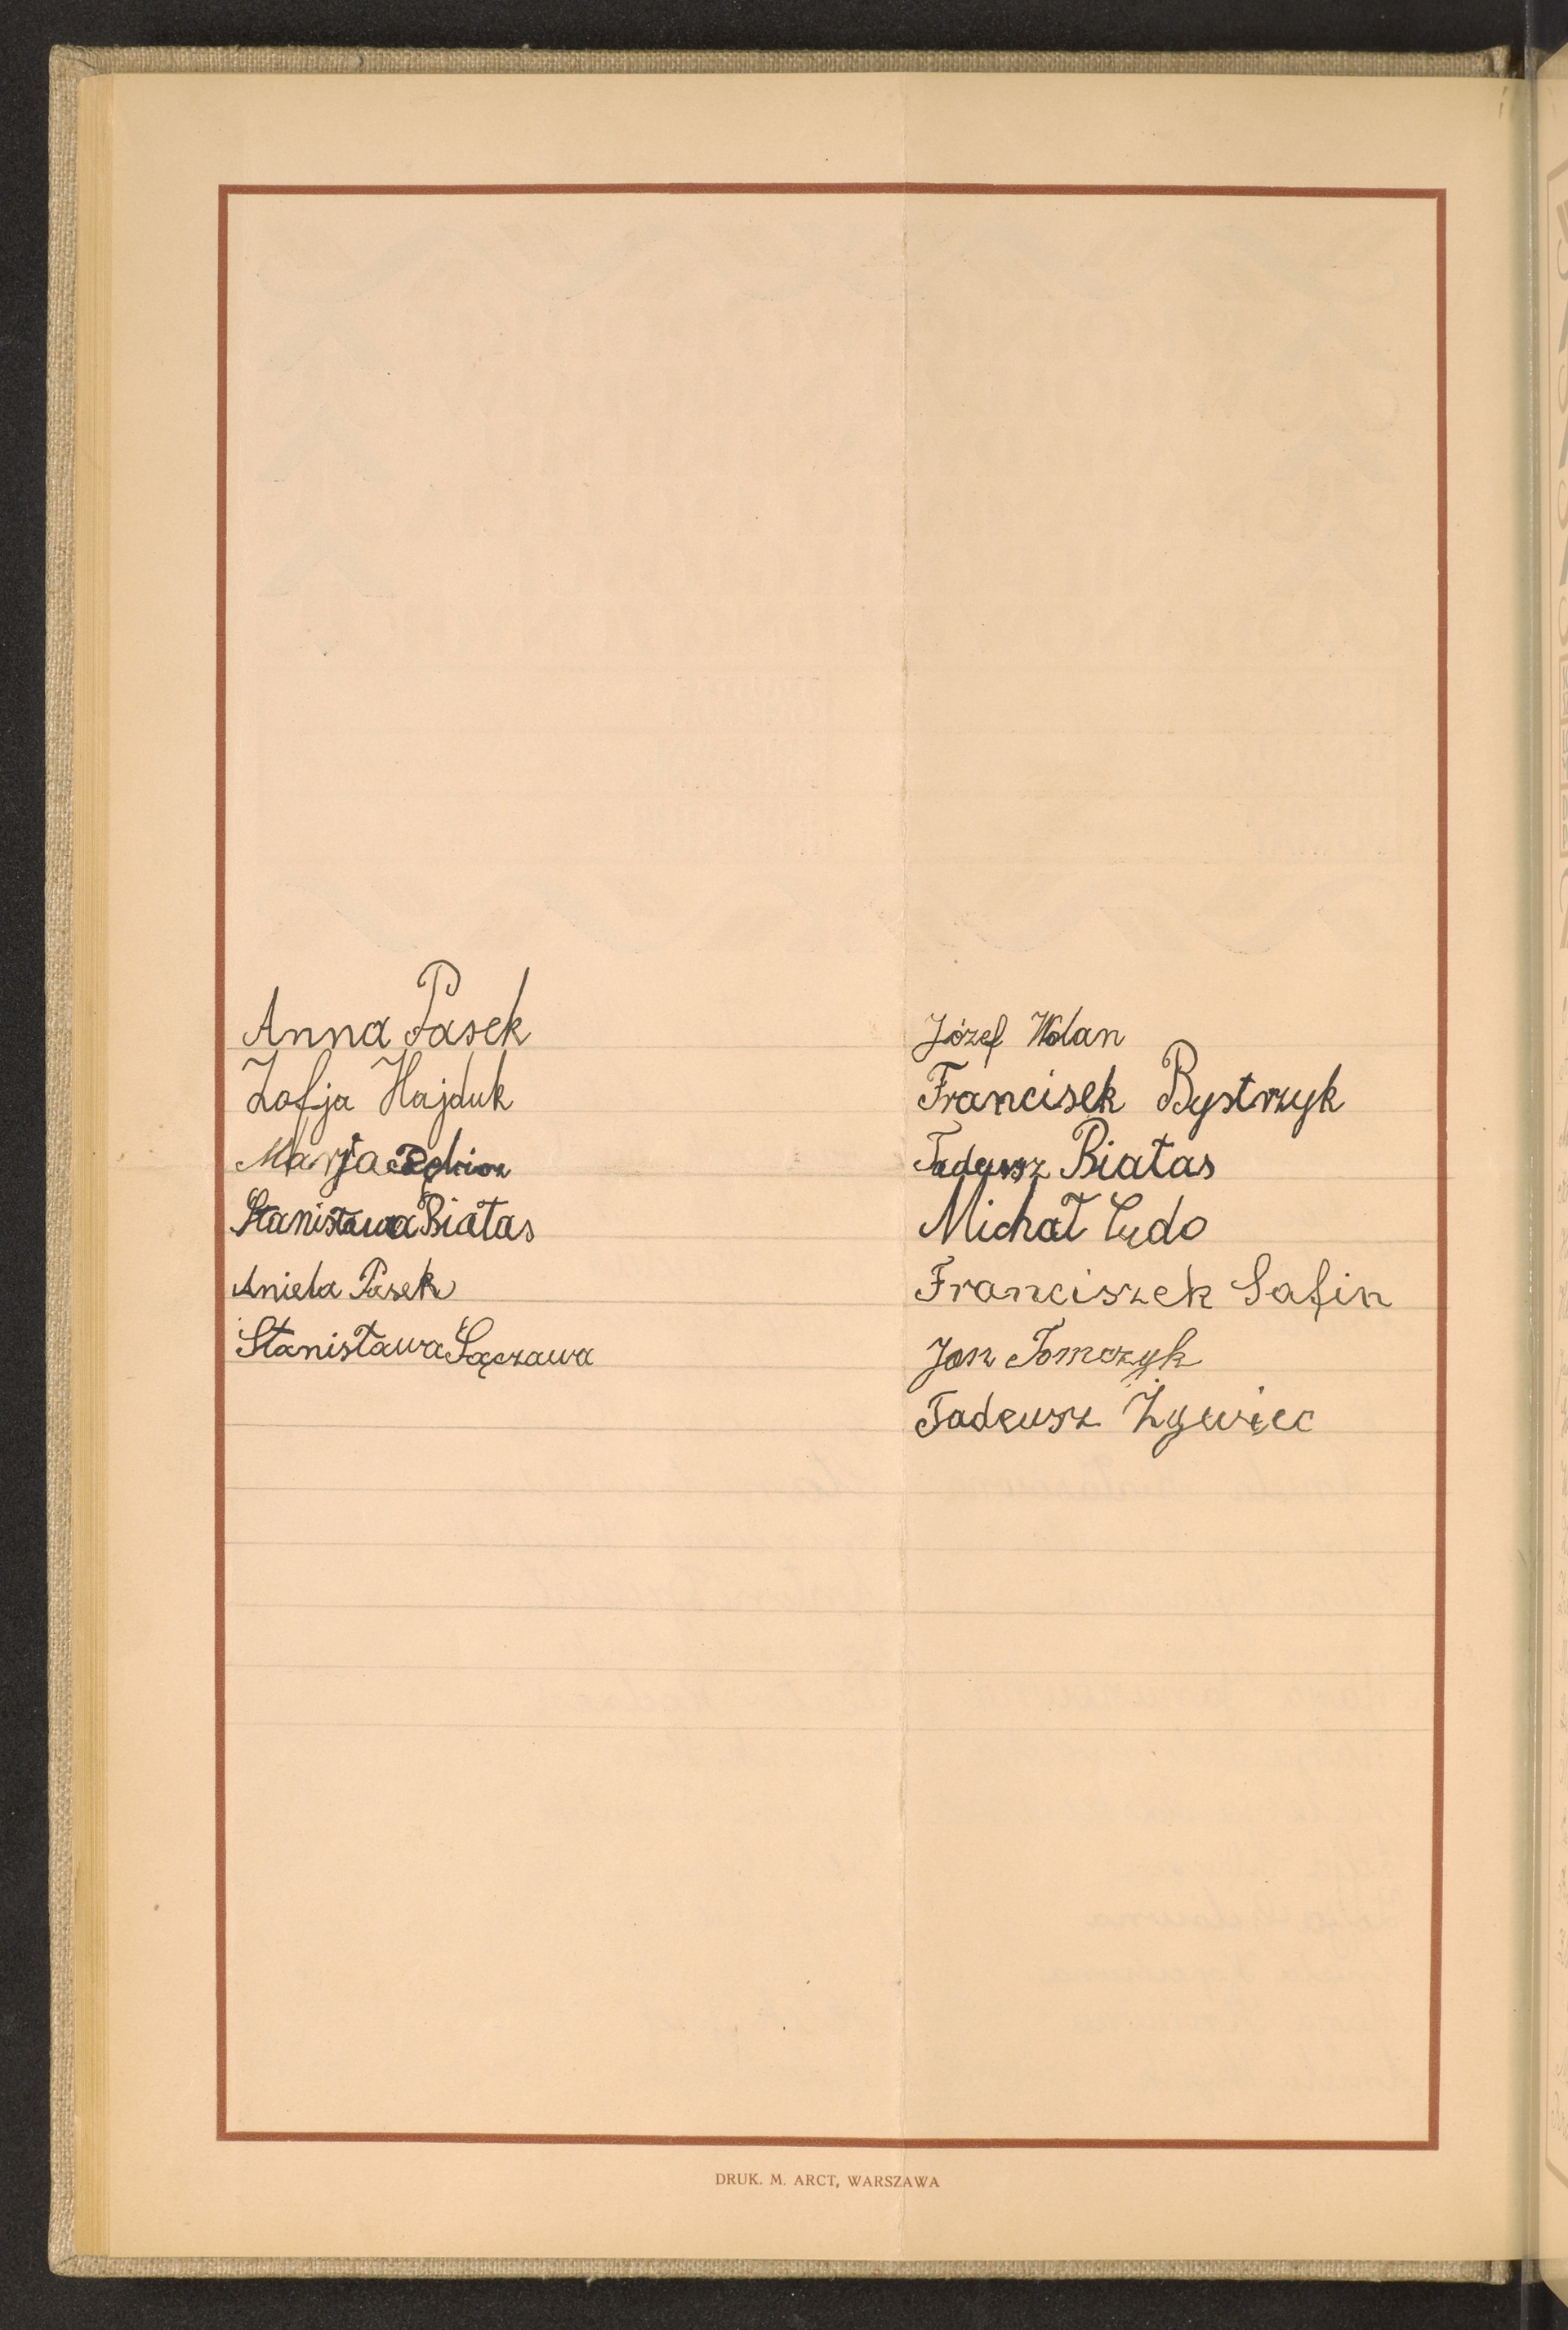 Anna Pasek
Zofja Hajduk
Marja
Stanisława Białas
Aniela Pasek
Stanisława Łączawa
Józef Wolan
Francisek Bystrzyk
Tadeusz Białas
Michał Cydo
Franciszek Safin
Jan Tomczyk
Tadeusz Żywiec
DRUK. M. ARCT, WARSZAWA